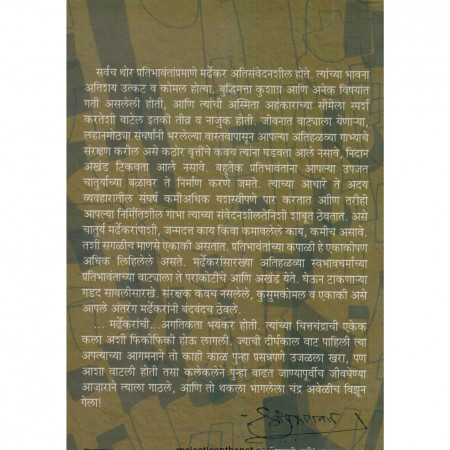 सर्वच थोर प्रतिभावंतांप्रमाणे मर्ढेकर अतिसंवेदनशील होते. त्यांच्या भावना
अतिशय उत्कट व कोमल होत्या, बुद्धिमत्ता कुशाग्र आणि अनेक विषयांत
गती असलेली होती, आणि त्यांची अस्मिता अहंकाराच्या सीमेला स्पर्श
करतेशी वाटेल इतकी तीव्र व नाजुक होती. जीवनात वाट्याला येणाऱ्या,
लहानमोठ्या संघर्षांनी भरलेल्या वास्तवापासून आपल्या अतिहळव्या गाभ्याचे
संरक्षण करील असे कठोर वृत्तीचे कवच त्यांना घडवता आले नसावे, निदान
अखंड टिकवता आले नसावे. बहुतेक प्रतिभावंतांना आपल्या उपजत
चातुर्याच्या बळावर ते निर्माण करणे जमते. त्याच्या आधारे ते अदय
व्यवहारातील संघर्ष कमीअधिक यशस्वीपणे पार करतात आणि तरीही
आपल्या निर्मितिशील गाभा त्याच्या संवेदनशीलतेनिशी शाबूत ठेवतात. असे
चातुर्य मर्ढेकरांपाशी, जन्मदत्त काय किंवा कमावलेले काय, कमीच असावे.
तशी सगळीच माणसे एकाकी असतात. प्रतिभावंतांच्या कपाळी हे एकाकीपण
अधिक लिहिलेले असते. मर्ढेकरांसारख्या अतिहळव्या स्वभावधर्माच्या
प्रतिभावंताच्या वाट्याला ते पराकोटीचे आणि अखंड येते. घेऊन टाकणाऱ्या
गडद सावलीसारखे. संरक्षक कवच नसलेले, कुसुमकोमल व एकाकी असे
आपले अंतरंग मर्ढेकरांनी बंदबंदच ठेवले.
... मर्ढेकरांची...अगतिकता भयंकर होती. त्यांच्या चित्तचंद्राची एकेक
कला अशी फिकीफिकी होऊ लागली. ज्याची दीर्घकाल वाट पाहिली त्या
अपत्याच्या आगमनाने तो काही काळ पुन्हा प्रसन्नपणे उजळला खरा, पण
आशा वाटली होती तसा कलेकलेने पुन्हा वाढत जाण्यापूर्वीच जीवघेण्या
आजाराने त्याला गाठले, आणि तो थकला भागलेला चंद्र अवेळीच विझून
गेला!